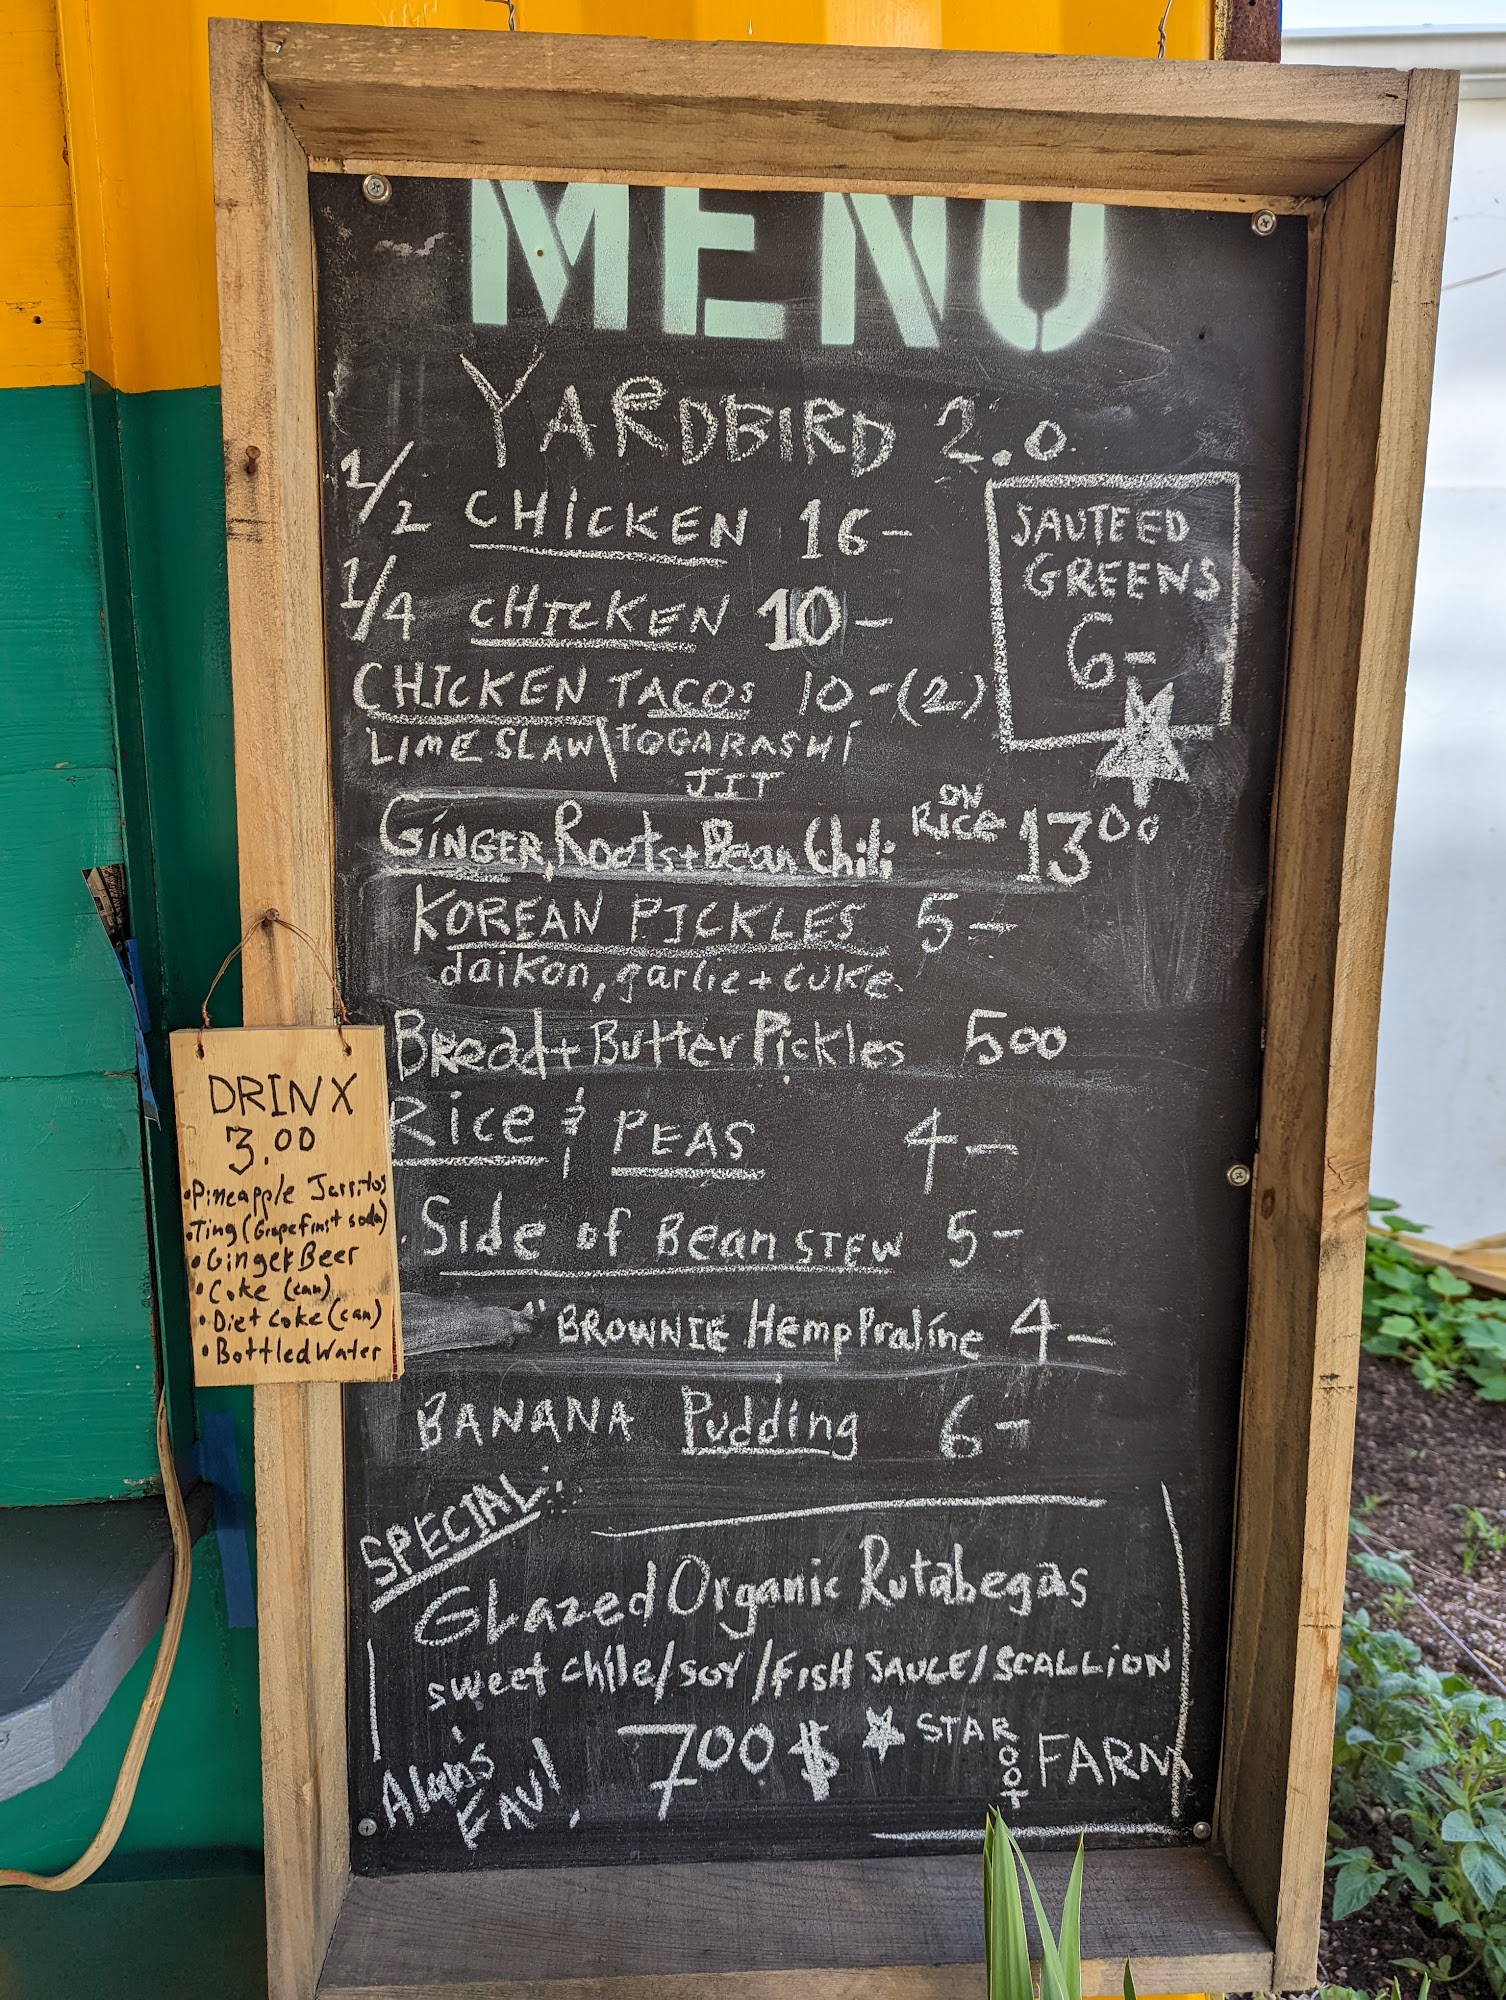 MENU
YARDBIRD 2.0
1/2 CHICKEN 16-
1/4 CHICKEN 10-
SAUTEED
GREENS
6-
CHICKEN TACOS 10-(2)
LIME SLAW\TOGARASHI
JIT
GINGER, Roots+Bean Chili ON RICE 1300
KOREAN PICKLES 5-
daikon, garlic + cuke
Bread+Butter Pickles 500
Rice & PEAS 4-
Side of Bean STEW 5-
"BROWNIE Hemp Praline 4-
BANANA Pudding 6-
SPECIAL...
GLazed Organic Rutabegas
sweet chile/soy/FISH SAUCE/SCALLION
Alan's FAV!
700$ STAR ROOT FARM
DRINX
3.00
•Pineapple Jarritos
•Ting (Grapefruit soda)
•Ginger Beer
•Coke (can)
•Diet Coke (can)
•Bottled Water